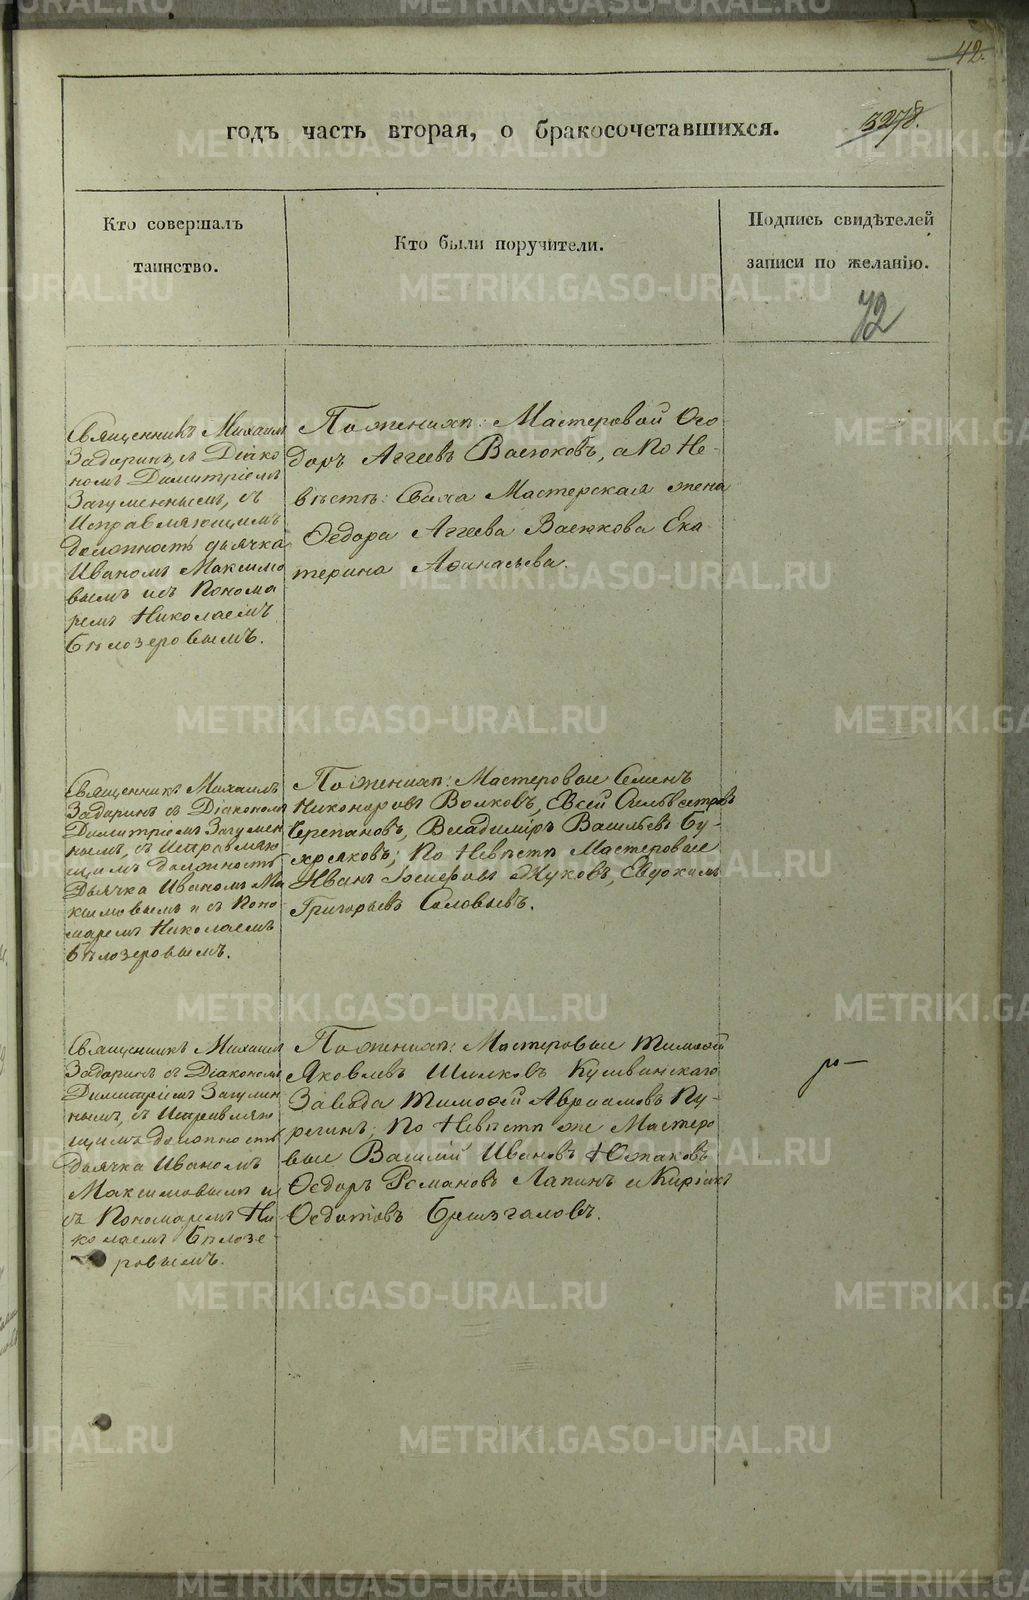 42.
годъ часть вторая, о бракосочетавшихся.
3278.
Кто совершалъ
таинство.
Кто были поручители.
Подпись свидѣтелей
записи по желанію.
72
Священникъ Михаил
Задоринъ, съ Діако
номъ Димитріемъ
Загуменнымъ, съ
Исправляющимъ
должность дьячка
Иваномъ Максимо
вымъ и съ Понома
ремъ Николаемъ
Бѣлозеровымъ.
По женихѣ: Мастеровой Ѳео
доръ Аггеевъ Васюковъ, а по Не-
вѣстѣ: Сваха Мастерская жена
Ѳедора Аггеева Васюкова Ека
терина Аѳинасьева.
Священникъ Михаилъ
Задоринъ съ Діакономъ
Димитріемъ Загумен
нымъ, съ Исправляю
щимъ должность
Дьячка Иваномъ Ма
ксимовымъ и съ Поно
маремъ Николаемъ
Бѣлозеровымъ.
По женихѣ: Мастеровые Семенъ
Никоноровъ Волковъ, Евсей Сильвестровъ
Черепановъ, Владиміръ Васильевъ Бу-
хряковъ; По Невѣстѣ Мастеровые
Иванъ Жуковъ, Евдокимъ
Григорьевъ Соловьевъ.
Священникъ Михаил
Задоринъ съ Діакономъ
Димитріемъ Загумен
нымъ, съ Исправляю
щимъ должность
дьячка Иваномъ
Максимовымъ и
съ Пономаремъ Ни
колаемъ Бѣлозе-
ровымъ.
По женихѣ: Мастеровые Тимоѳей
Яковлевъ Шилковъ Кушвинскаго
Завода Тимоѳей Авраамовъ Пу-
регинъ; По Невѣстѣ же Мастеро
вые Василій Ивановъ Южаковъ
Ѳедоръ Романовъ Лапинъ и Киріакъ
Ѳедотовъ Брызгаловъ.